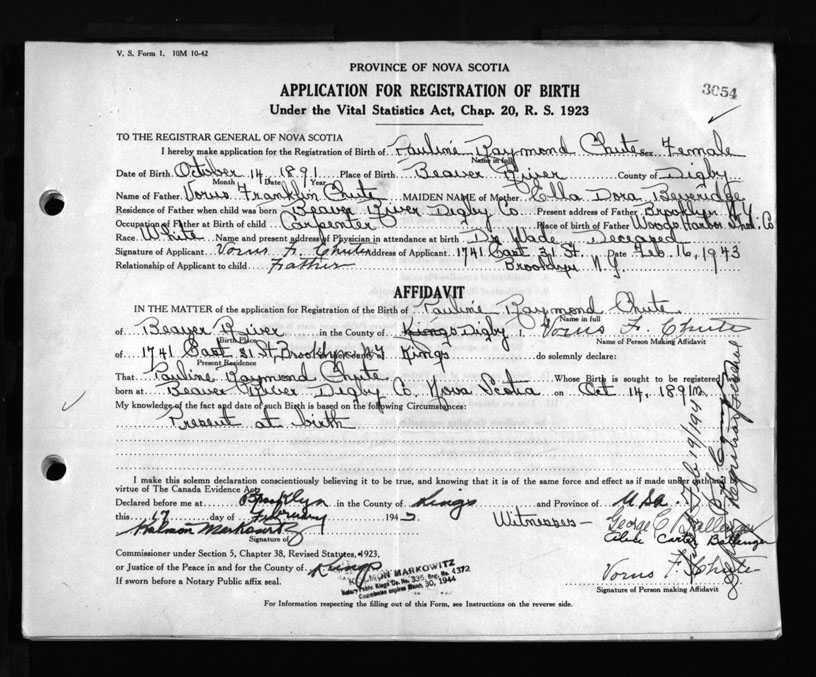 V. S. Form 1. 10M 10-42
PROVINCE OF NOVA SCOTIA
3054
APPLICATION FOR REGISTRATION OF BIRTH
Under the Vital Statistics Act, Chap. 20, R. S. 1923
TO THE REGISTRAR GENERAL OF NOVA SCOTIA
I hereby make application for the Registration of Birth of Pauline Raymond Chute Sex Female
Name in full
Date of Birth October 14, 1891 Place of Birth Beaver River County of Digby
Month Date Year
Name of Father Vorus Franklin Chute MAIDEN NAME of Mother Ella Dora Beveridge
Residence of Father when child was born Beaver River Digby Co. Present address of Father Brooklyn N.Y.
Occupation of Father at Birth of child Carpenter Place of birth of Father Woods Harbor Shel. Co
Race White Name and present address of Physician in attendance at birth Dr. Wade - Deceased
Signature of Applicant Vorus F. Chute Address of Applicant 1741 East 31 St. Date Feb. 16, 1943
Relationship of Applicant to child Father Brooklyn N.Y.
AFFIDAVIT
IN THE MATTER of the application for Registration of the Birth of Pauline Raymond Chute
Name in full
of Beaver River in the County of Kings Digby I, Vorus F. Chute
Birth Place Name of Person Making Affidavit
of 1741 East 31 St, Brooklyn N.Y. Kings do solemnly declare:
Present Residence
That Pauline Raymond Chute Whose Birth is sought to be registered was
born at Beaver River Digby Co. Nova Scotia on Oct 14, 1891
My knowledge of the fact and date of such Birth is based on the following Circumstances:
Present at birth
I make this solemn declaration conscientiously believing it to be true, and knowing that it is of the same force and effect as if made under oath and
virtue of The Canada Evidence Act.
Declared before me at Brooklyn in the County of Kings and Province of USA.
this 17 day of February 1943 Witnesses - George E. Ballenger
Kalman Markowitz Carter Ballenger
Signature of
Commissioner under Section 5, Chapter 38, Revised Statutes, 1923,
or Justice of the Peace in and for the County of Kings Vorus F. Chute
If sworn before a Notary Public affix seal.
Signature of Person making Affidavit
KALMAN MARKOWITZ
Notary Public Kings Co. No. 335, Reg. No. 4372
Commission expires March 30, 1944
For Information respecting the filling out of this Form, see Instructions on the reverse side.